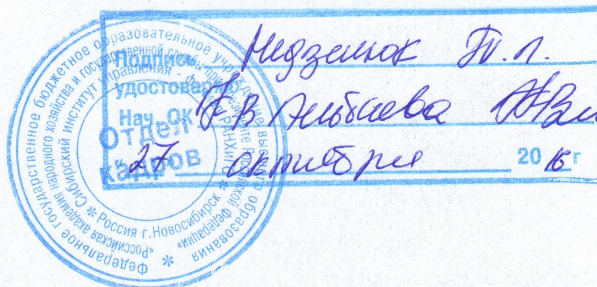 Подпись Недзелюк Т.Г.
удостоверяю
Нач. ОК
27 октября 2016 г
Федеральное государственное бюджетное образовательное учреждение высшего образования
"Российская академия народного хозяйства и государственной службы при Президенте Российской Федерации"
Сибирский институт управления - филиал РАНХиГС
Россия г.Новосибирск
Отдел
кадров